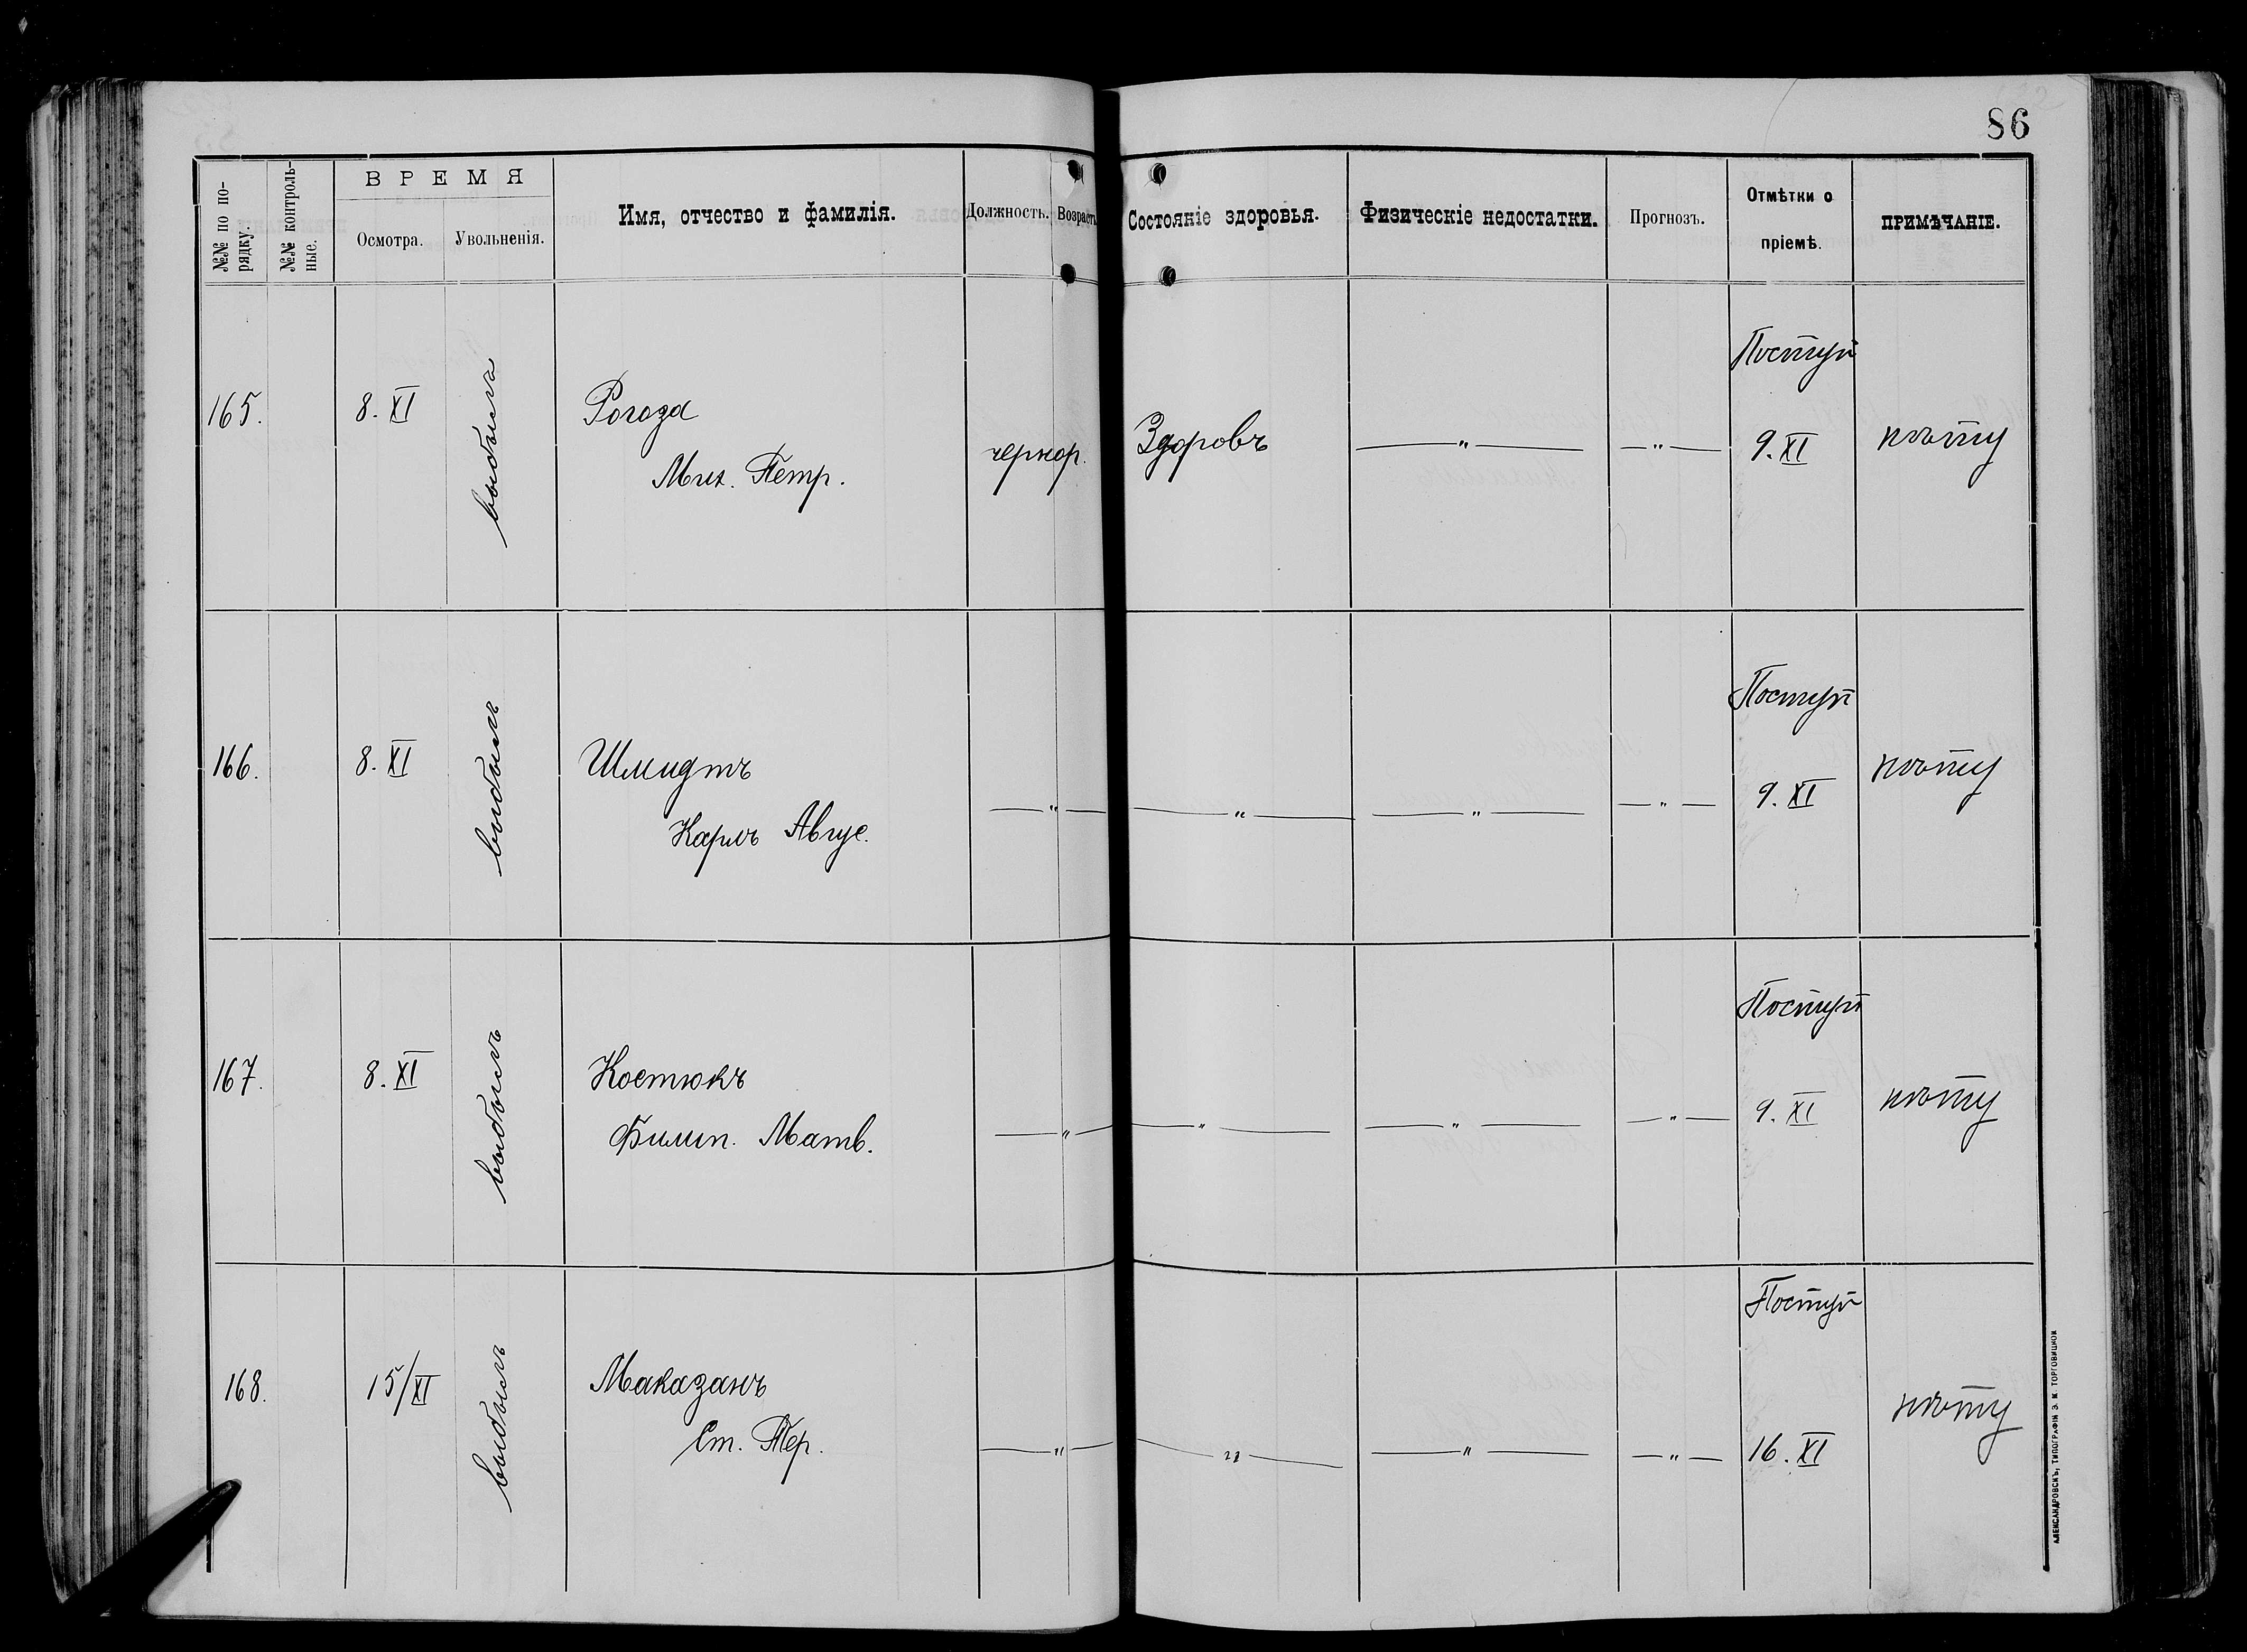 86
№№ по по-
рядку.
№№ контроль-
ные.
ВРЕМЯ
Осмотра.
Увольненія.
Имя, отчество и фамилія.
Должность.
Возрастъ
Состояніе здоровья.
Физическіе недостатки.
Прогнозъ.
Отмѣтки о
пріемѣ.
ПРИМѢЧАНІЕ.
165.
8. XI
выбылъ
Рогоза
Мих. Петр.
чернор.
Здоровъ
— " —
— " —
Поступ
9. XI
нѣту
166.
8. XI
выбылъ
Шмидтъ
Карлъ Авгус.
— " —
— " —
— " —
— " —
Поступ
9. XI
нѣту
167.
8. XI
выбылъ
Костюкъ
Филип. Матв.
— " —
— " —
— " —
— " —
Поступ
9. XI
нѣту
168.
15/XI
выбылъ
Маказанъ
Ст. Тер.
— " —
— " —
— " —
— " —
Поступ
16. XI
нѣту
АЛЕКСАНДРОВСКЪ, ТИПОГРАФІЯ Э. М. ТОРГОВИЦКОЙ